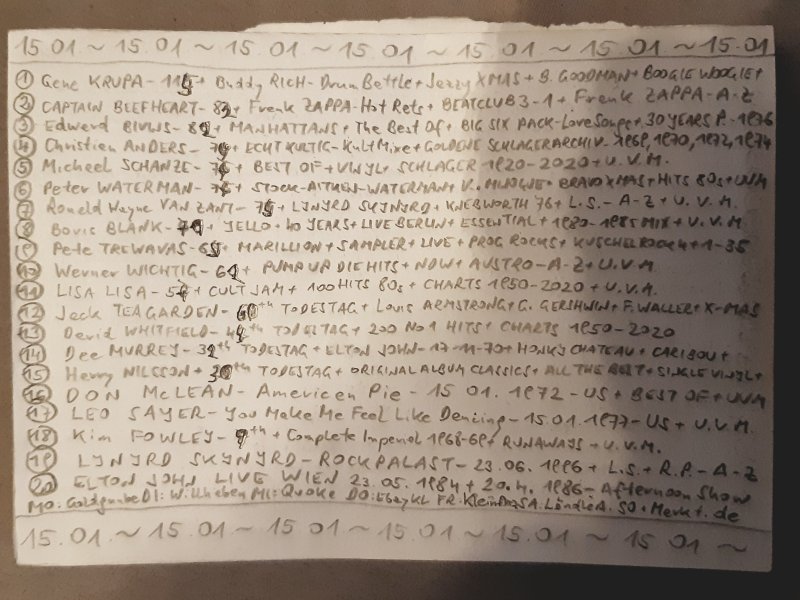 15.01 ~ 15.01 ~ 15.01 ~ 15.01 ~ 15.01 ~ 15.01 ~ 15.01
1 Gene KRUPA - + Buddy RICH - Drum Battle + Jazzy XMAS + B. GOODMAN + BOOGIE WOOGIE +
2 CAPTAIN BEEFHEART - + Frank ZAPPA - Hot Rats + BEATCLUB 3-1 + Frank ZAPPA - A-Z
3 Edward BIVINS - + MANHATTANS + The Best Of + BIG SIX PACK - Love Songs + 30 YEARS P. - 1976
4 Christian ANDERS - + ECHT KULTIG - Kult Mixe + GOLDENE SCHLAGERARCHIV - 1969, 1970, 1972, 1974
5 Michael SCHANZE - + BEST OF + VINYL + SCHLAGER 1920-2020 + U.V.M.
6 Peter WATERMAN - + STOCK-AITKEN-WATERMAN + K. MINOGUE + BRAVO XMAS + HITS 80s + UVM
7 Ronald Wayne VAN ZANT - + LYNYRD SKYNYRD + KNEBWORTH 76 + L.S. - A-Z + U.V.M.
8 Boris BLANK - + YELLO + 40 YEARS + LIVE BERLIN + ESSENTIAL + 1980-1985 MIX + U.V.M.
9 Pete TREWAVAS - + MARILLION + SAMPLER + LIVE + PROG ROCKS + KUSCHELROCK + 1-35
10 Werner WICHTIG - + PUMP UP DIE HITS + NDW + AUSTRO - A-Z + U.V.M.
11 LISA LISA - + CULT JAM + 100 HITS 80s + CHARTS 1950-2020 + U.V.M.
12 Jack TEAGARDEN - th TODESTAG + Louis ARMSTRONG + G. GERSHWIN + F. WALLER + X-MAS
13 David WHITFIELD - th TODESTAG + 200 No 1 HITS + CHARTS 1950-2020
14 Dee MURREY - th TODESTAG + ELTON JOHN - 17-11-70 + HONKY CHATEAU + CARIBOU +
15 Harry NILSSON + th TODESTAG + ORIGINAL ALBUM CLASSICS + ALL THE BEST + SINGLE VINYL +
16 DON McLEAN - American Pie - 15 01. 1972 - US + BEST OF + UVM
17 LEO SAYER - You Make Me Feel Like Dancing - 15.01.1977 - US + U.V.M.
18 Kim FOWLEY - th + Complete Imperial 1968-69 + RUNAWAYS + U.V.M.
19 LYNYRD SKYNYRD - ROCKPALAST - 23.06.1996 + L.S. + R.P. - A-Z
20 ELTON JOHN LIVE WIEN 23.05.1984 + 20.4.1986 - Afternoon Show
MO: Goldgrube DI: W. MI: DO: Ebay KL FR: SA: LändleA. SO: Markt.de
15.01 ~ 15.01 ~ 15.01 ~ 15.01 ~ 15.01 ~ 15.01 ~